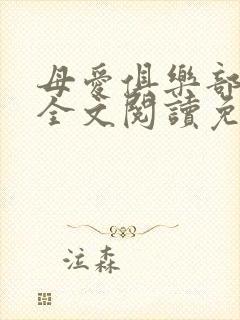 母愛俱樂部
全文閱讀免
泣森